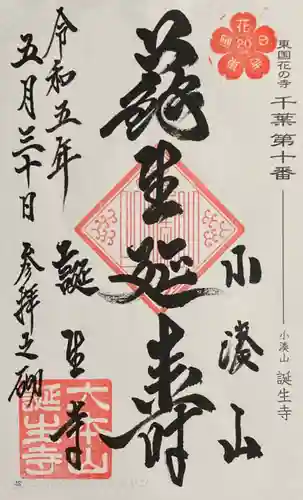 東国花の寺 千葉第十番
小湊山 誕生寺
小湊山
蘇生延寿
誕生寺
令和五年
五月三十日 参拝之砌
大本山
誕生寺